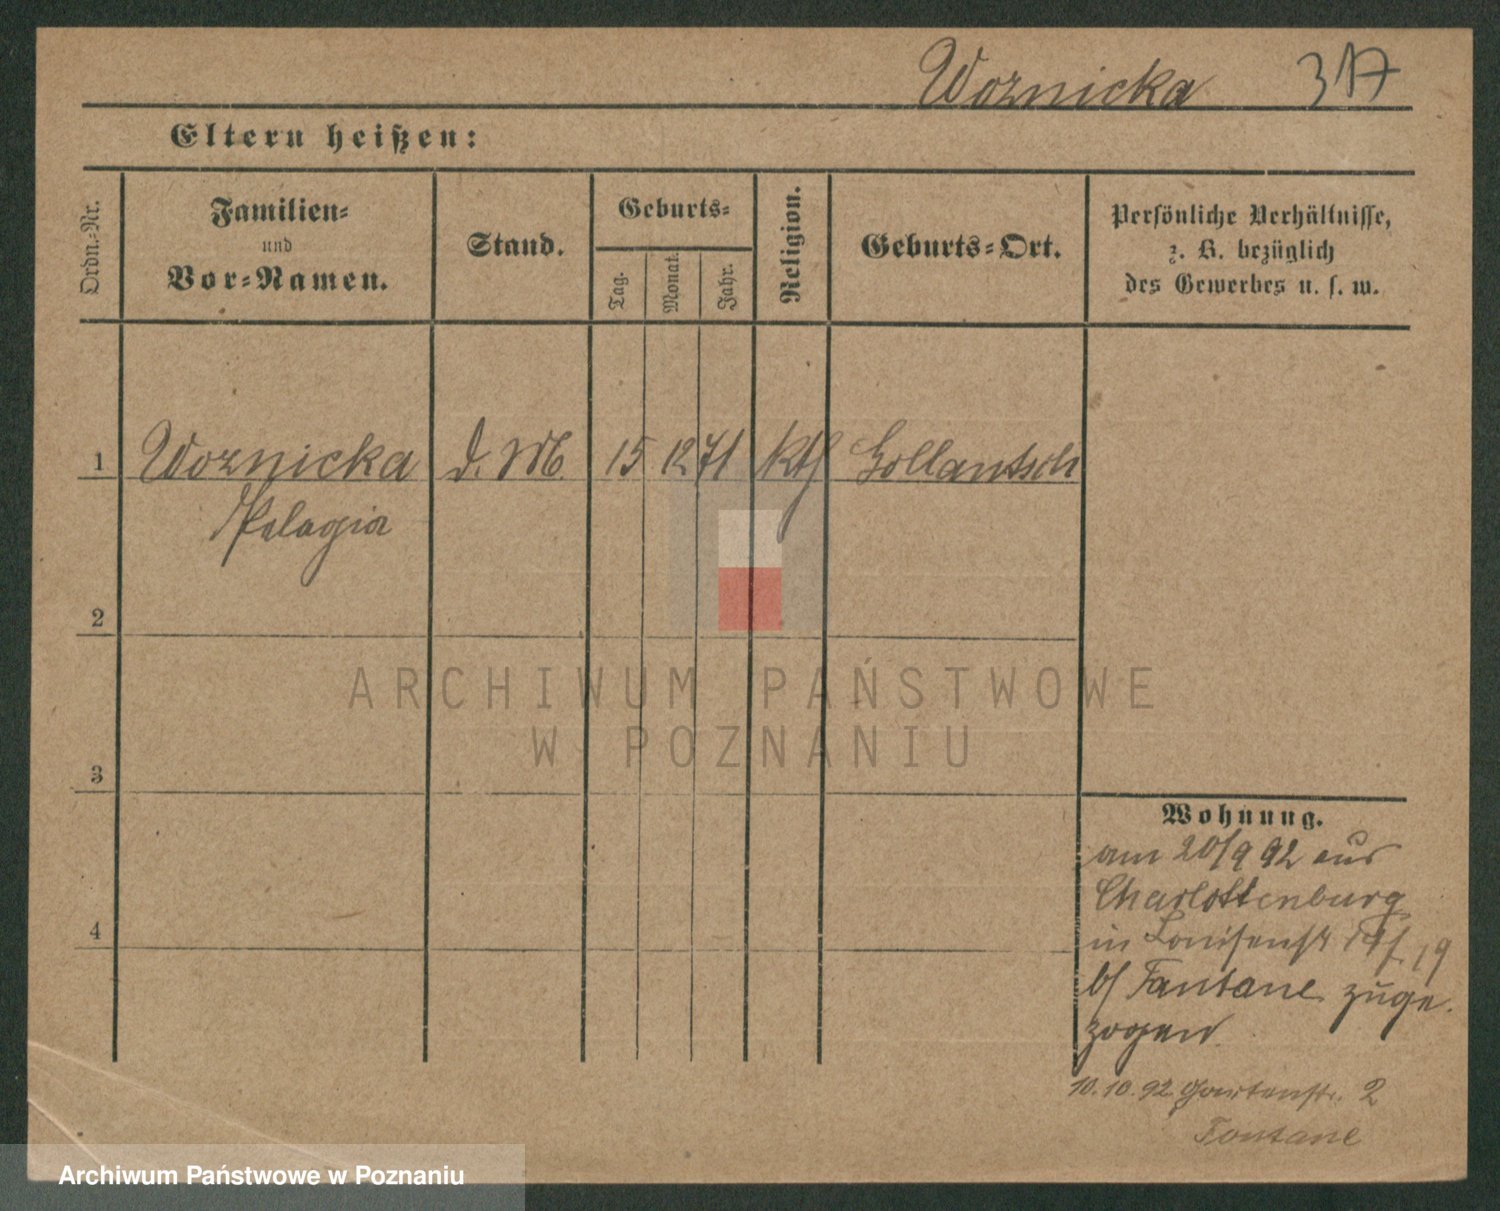 Woznicka 317
Eltern heißen:
Ordn.-Nr.
Familien-
und
Vor-Namen.
Stand.
Geburts-
Tag.
Monat.
Jahr.
Religion.
Geburts-Ort.
Persönliche Verhältnisse,
z. B. bezüglich
des Gewerbes u. s. w.
1 Woznicka d. M. 15 12 71 kth Gollantsch
Pelagia
2
3
4
Wohnung.
am 20/9 92 aus
Charlottenburg
in Louisenstr 19
b/ Fontane zuge-
zogen
10.10.92 Gartenstr. 2
Fontane
ARCHIWUM PAŃSTWOWE
W POZNANIU
Archiwum Państwowe w Poznaniu